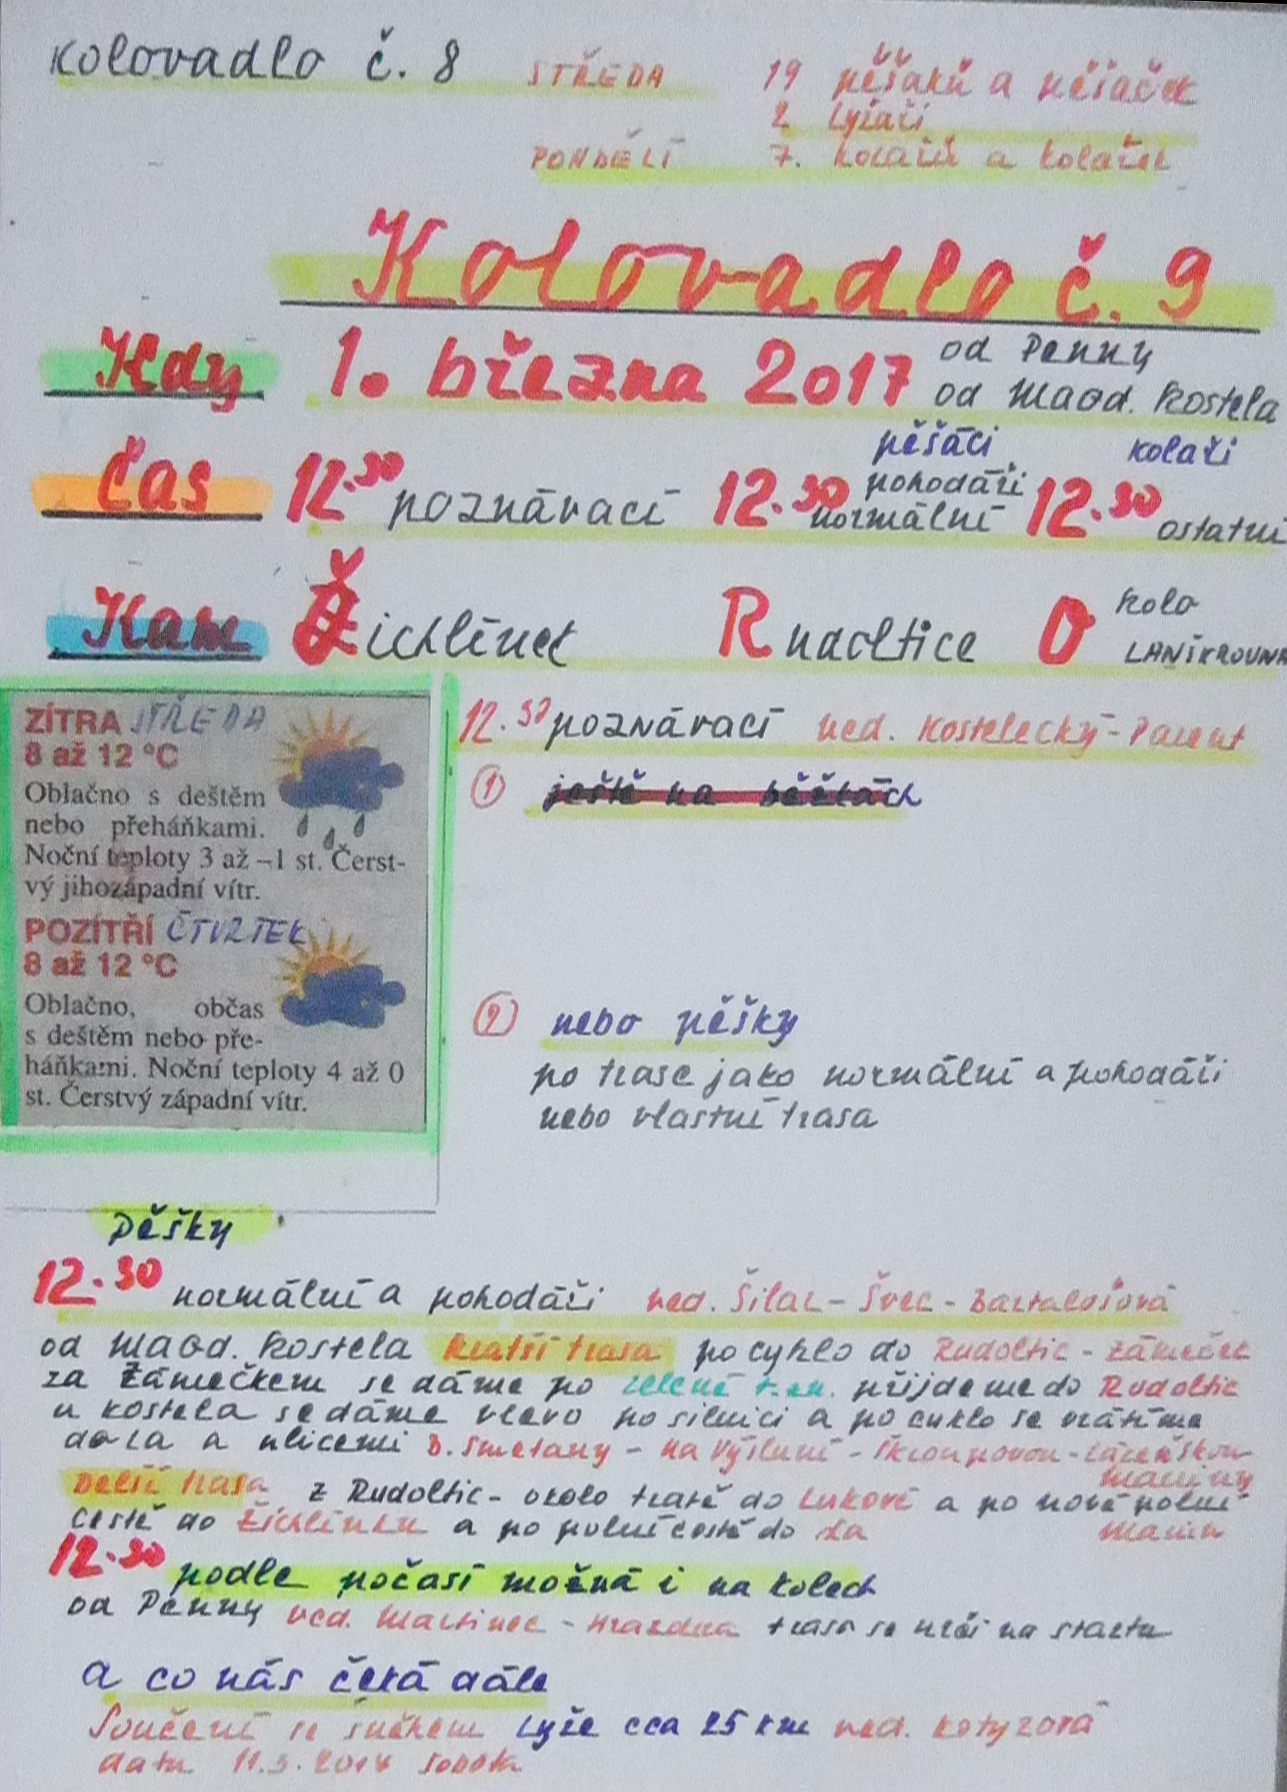 Kolovadlo č. 8
STŘEDA 19 pěšáků a pěšaček
2 lyžaři
PONDĚLÍ 7. kolařů a kolařek
Kolovadlo č. 9
Kdy 1. března 2017 od Penny
od Magd. kostela
pěšáci kolaři
Čas 12.30 poznávací 12.30 pohodáři normální 12.30 ostatní
Kam Žichlínek Rudoltice O kolo
LANŠKROUNA
ZÍTRA STŘEDA
8 až 12 °C
Oblačno s deštěm
nebo přeháňkami.
Noční teploty 3 až –1 st. Čerst-
vý jihozápadní vítr.
POZÍTŘÍ ČTVRTEK
8 až 12 °C
Oblačno, občas
s deštěm nebo pře-
háňkami. Noční teploty 4 až 0
st. Čerstvý západní vítr.
12.30 poznávací ved. Kostelecký -
① ještě na běžkách
② nebo pěšky
po trase jako normální a pohodáři
nebo vlastní trasa
Pěšky
12.30 normální a pohodáři ved. Šilar - Švec - Bartalošová
od Magd. kostela kratší trasa po cyklo do Rudoltic - zámeček
za Zámečkem se dáme po zelené t.zn. přijdeme do Rudoltic
u kostela se dáme vlevo po silnici a po cyklo se vrátíme
do LA a ulicemi B. Smetany - Na Výsluní - Škroupovou - Lázeňskou
Delší trasa z Rudoltic - okolo tratě do Lukové a po nové polní
cestě do Žichlínku a po polní cestě do La
12.30 podle počasí možná i na kolech
od Penny ved. Martinec - Hrazdira trasa se určí na startu
a co nás čeká dále
Loučení se sněhem lyže cca 25 km ved. Kotyzová
datu 11.3.2017 sobota